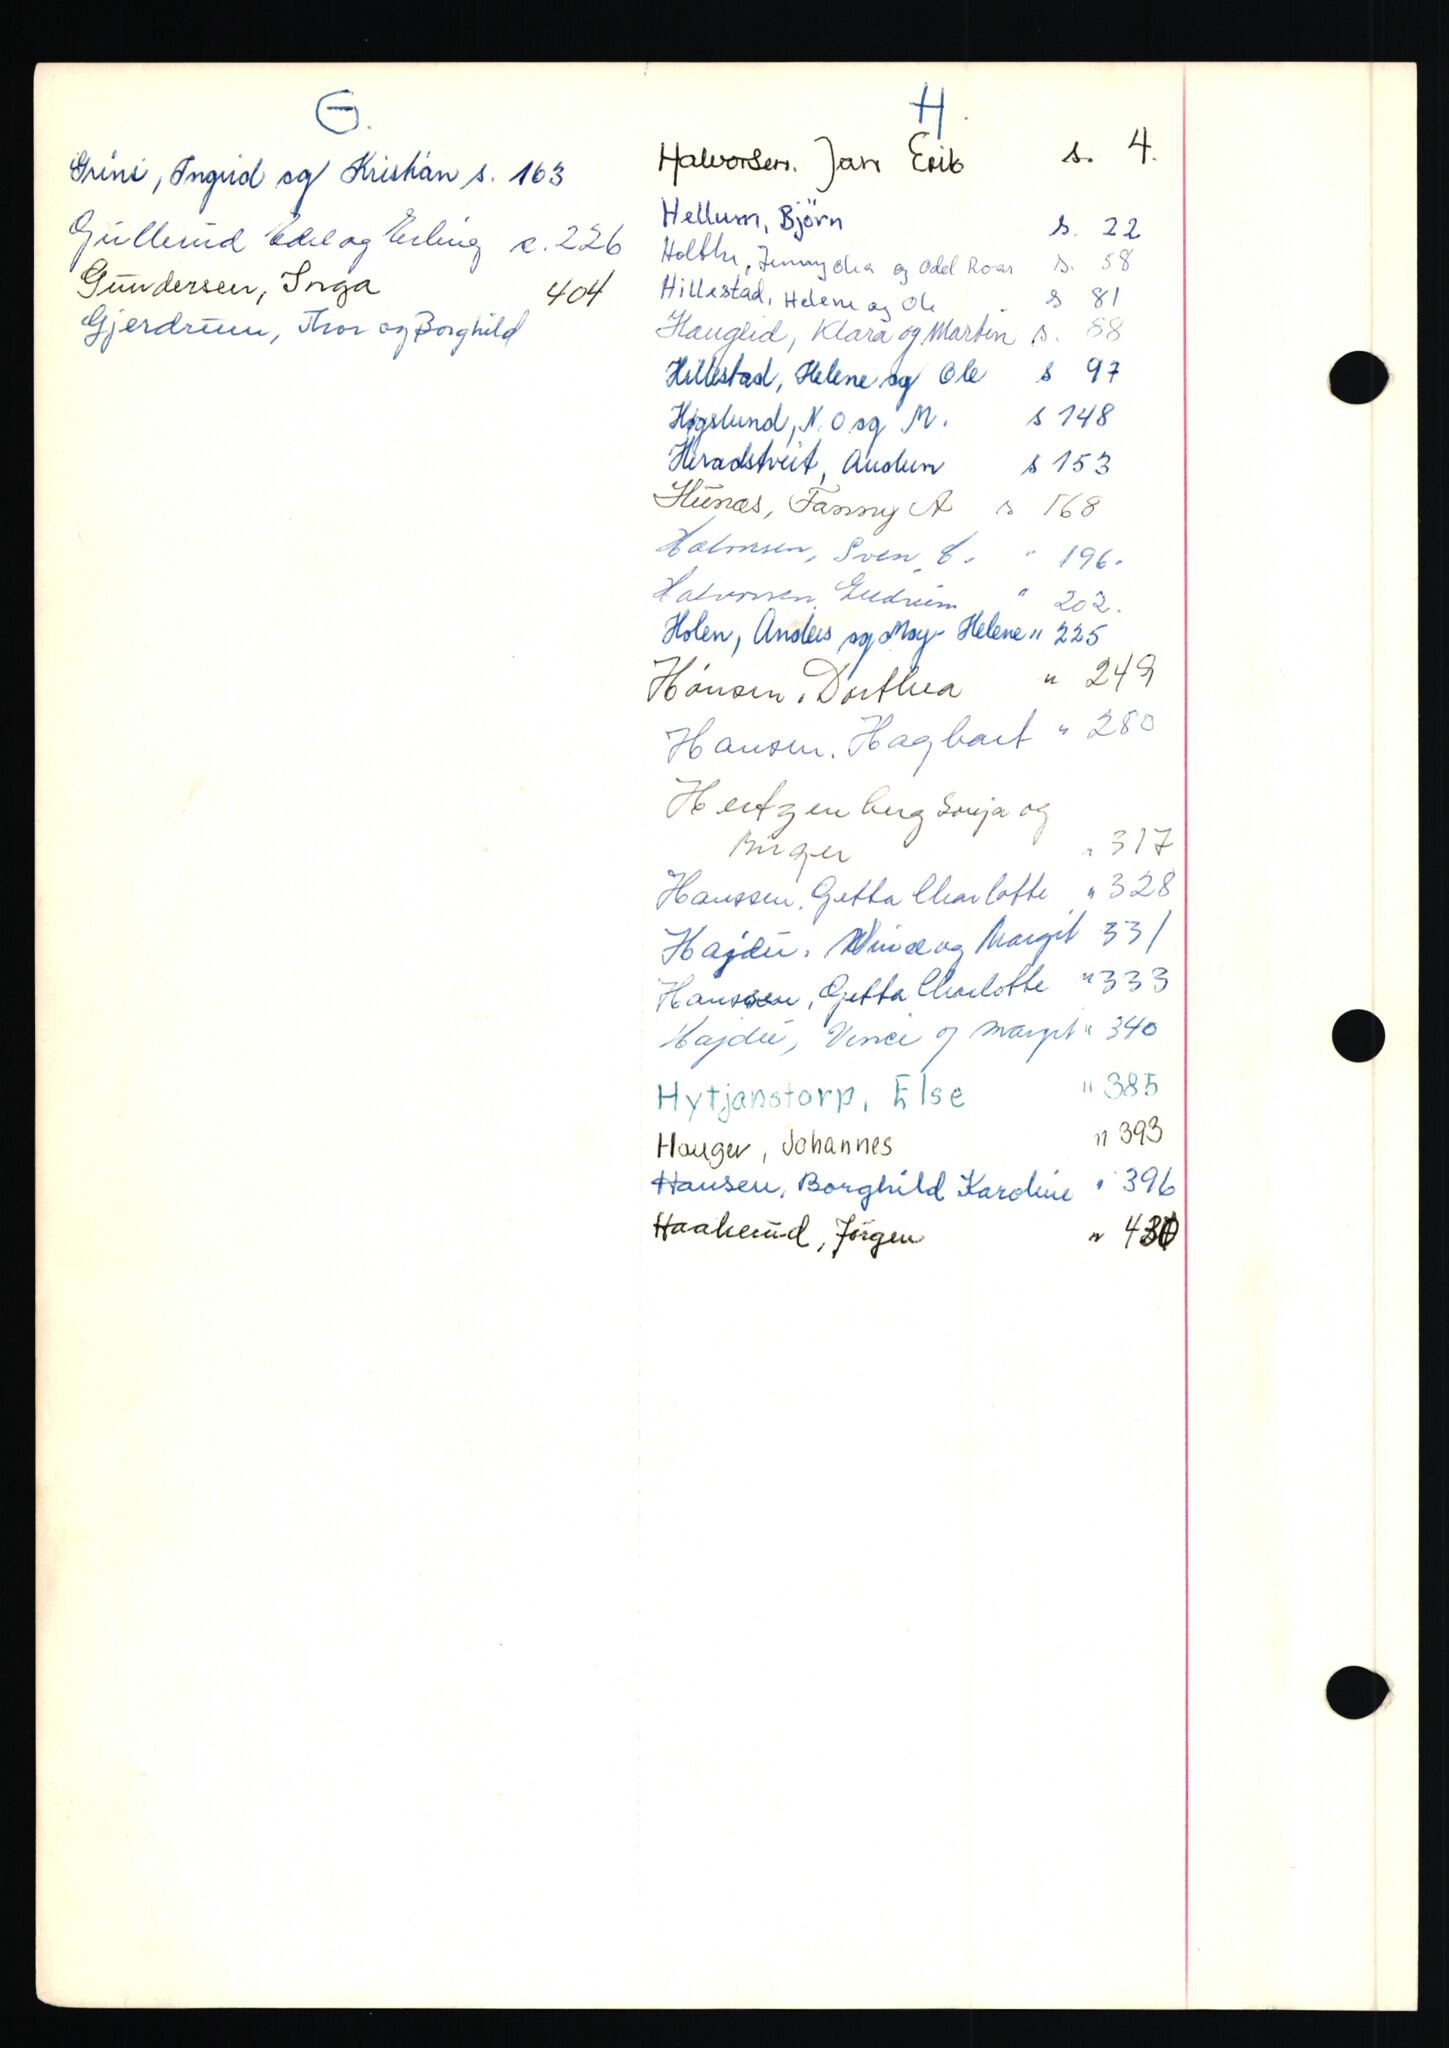 G.
Grini, Ingrid og Kristian s. 163
Gullerud Edel og Erling s. 226
Gundersen, Inga 404
Gjerdrum, Thor og Borghild
H.
Halvorsen. Jan Erik s. 4.
Hellum, Björn s. 22
Holthe, Jenny og Odd Roar s. 58
Hillestad, Helene og Ole s 81
Hauglid, Klara og Martin s. 88
Hillestad, Helene og Ole s 97
Høgslund, N. O og M. s 148
Heradstveit, Audun s 153
Hunæs, Fanny A s 168
Halvorsen, Sven E. " 196.
Halvorsen, Gudrun " 202.
Holen, Anders og May-Helene " 225
Hansen, Dorthea " 249
Hansen. Hagbart " 280
Hertzenberg Sonja og
Birger " 317
Hanssen. Getta Charlotte " 328
Hajdu. Vince og Margit 331
Hanssen, Getta Charlotte " 333
Hajdu, Vince og Margit " 340
Hytjanstorp, Else " 385
Hauger, Johannes " 393
Hansen, Borghild Karoline " 396
Haakerud, Jörgen " 430